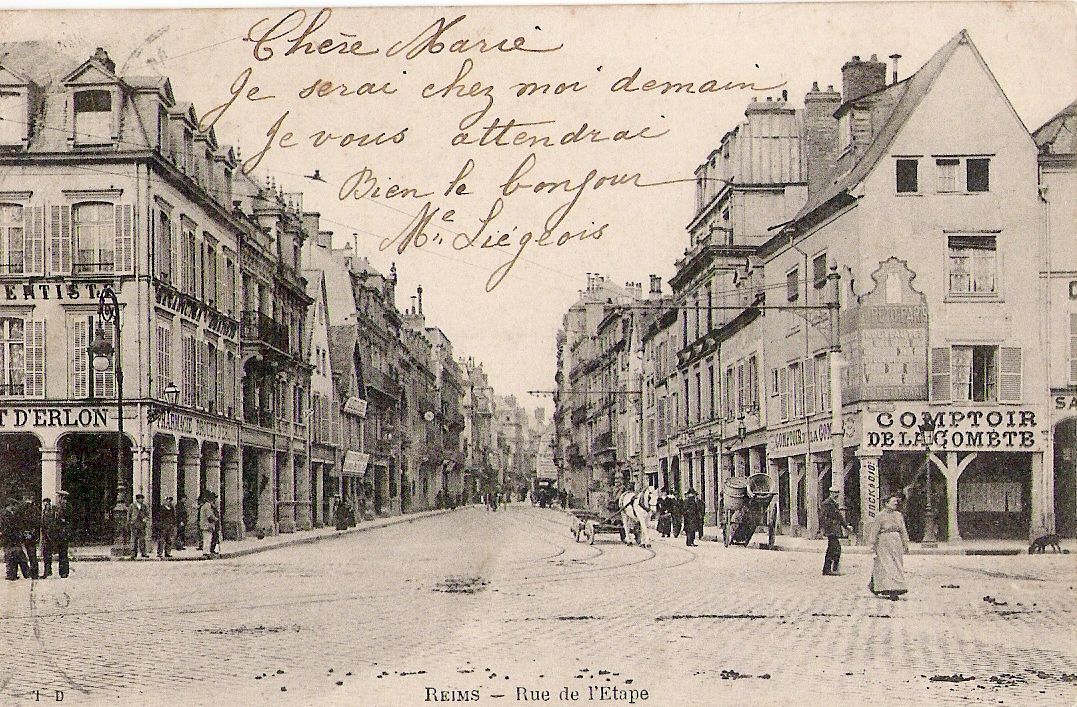 Chère Marie
Je serai chez moi demain
Je vous attendrai
Bien le bonjour
Me Liégeois
ENTISTE
T D'ERLON
PHARMACIE
COMPTOIR
DE LA COMÈTE
COMPTOIR DE LA COM
SA
BOCK A DIX
REIMS — Rue de l'Etape